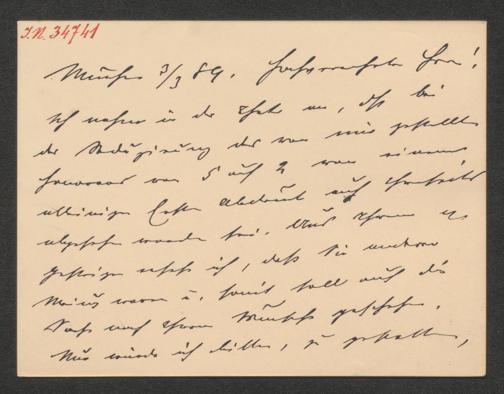 I.N. 34741
München 3/3 89. Hochverehrter Herr!
Ich nahm in der That an, daß bei
der Reduzirung des von mir gestellten
Honorars von 5 auf 2 von einem
alleinigen Erst Abdruck auf
abgesehen worden sei. Aus Ihrem
Gestrigen sehe ich, daß Sie anderer
Meinung waren u. somit soll auch die
Sache nach Ihrem Wunsche geschehen.
Nur würde ich bitten, zu gestatten,